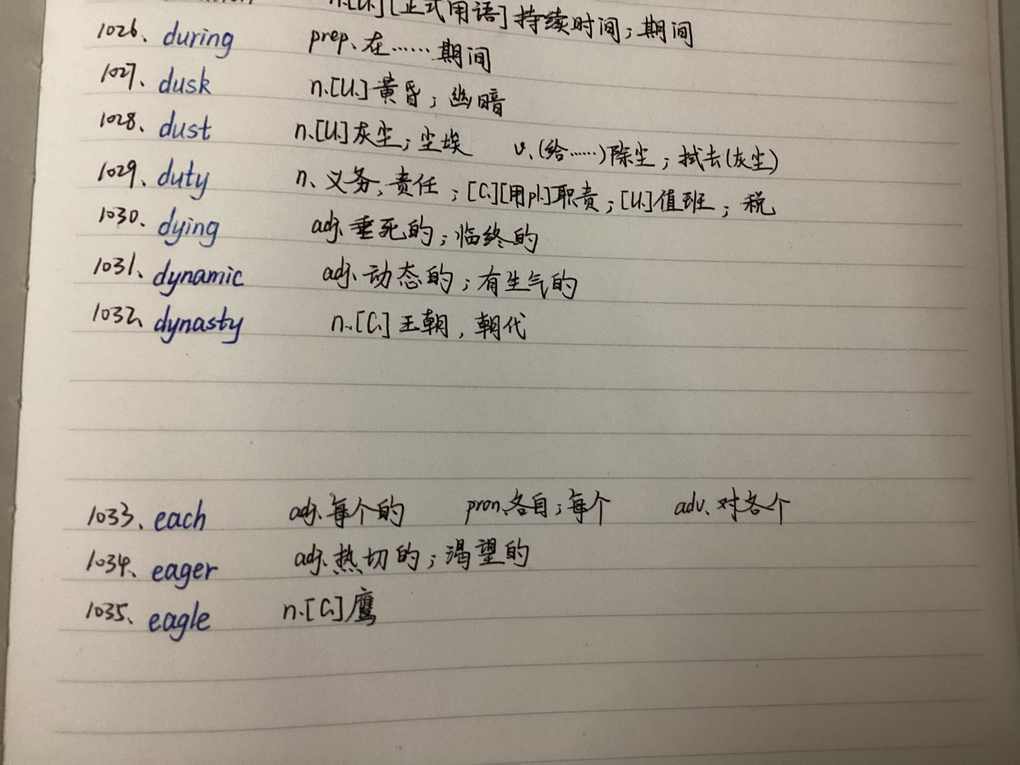 n.[U.][正式用语]持续时间;期间
1026、during prep.在……期间
1027、dusk n.[U.]黄昏;幽暗
1028、dust n.[U.]灰尘;尘埃 v.(给……)除尘;拭去(灰尘)
1029、duty n.义务,责任;[C.][用pl.]职责;[U.]值班;税
1030、dying adj.垂死的;临终的
1031、dynamic adj.动态的;有生气的
1032、dynasty n.[C.]王朝,朝代
1033、each adj.每个的 pron.各自;每个 adv.对各个
1034、eager adj.热切的;渴望的
1035、eagle n.[C.]鹰